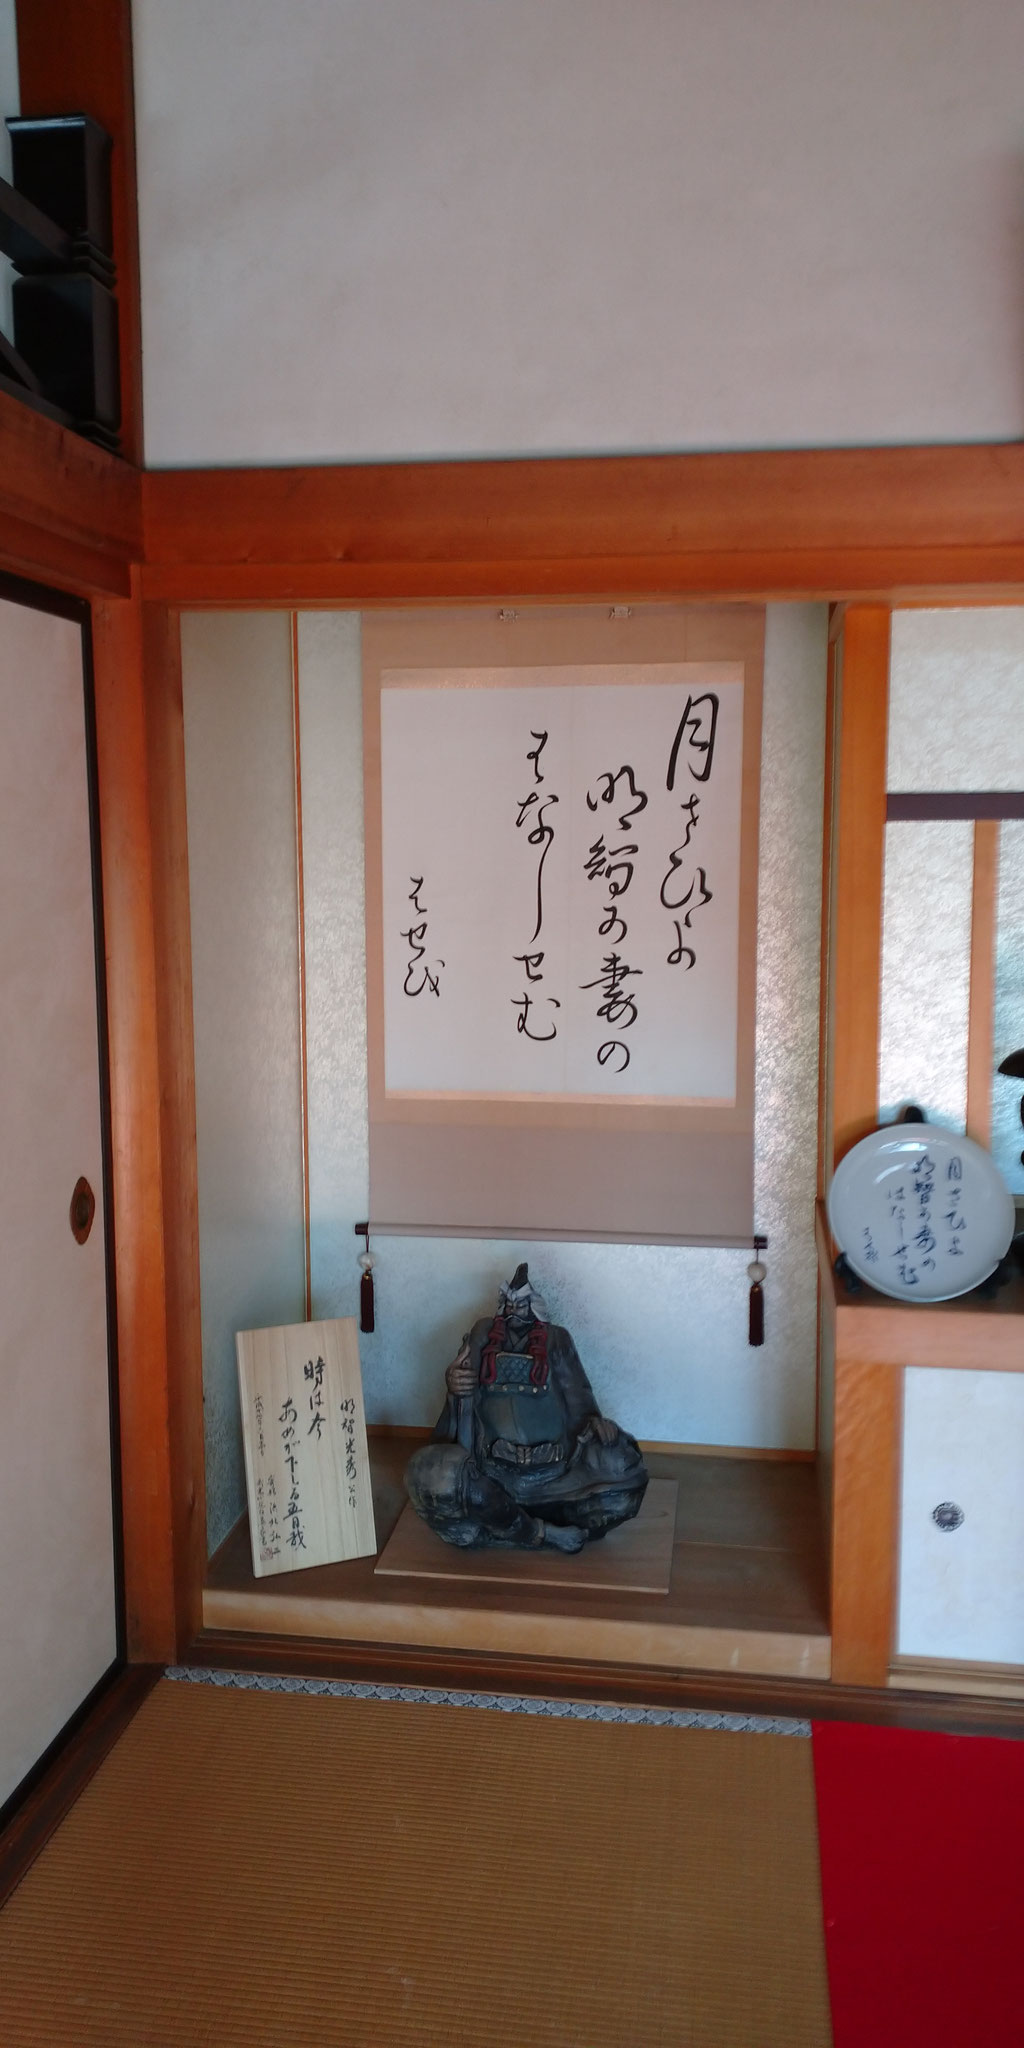 月さひよ
明智か妻の
はなしせむ
はせを
明智光秀公作
時は今
あめが下しる五月哉
月さびよ
明智か妻の
はなしせむ